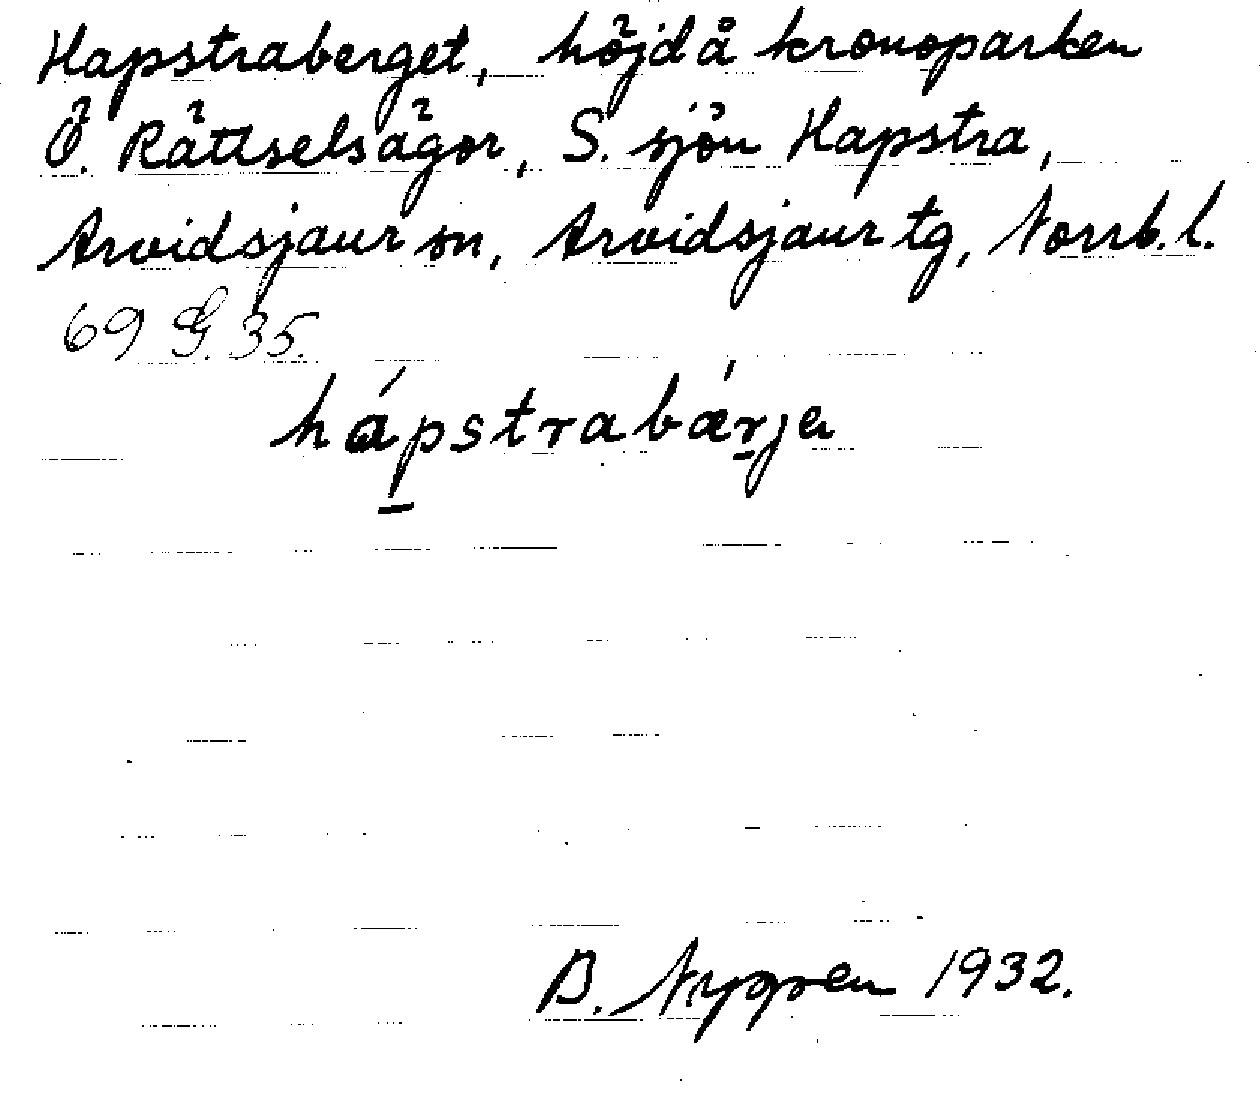 Hapstraberget, höjd å kronoparken
Ö. Rättselsågor, S. sjön Hapstra,
Arvidsjaur sn, Arvidsjaur tg, Norrb. l.
69 G. 35.
hápstrabǽrjɐ
B. Nygren 1932.